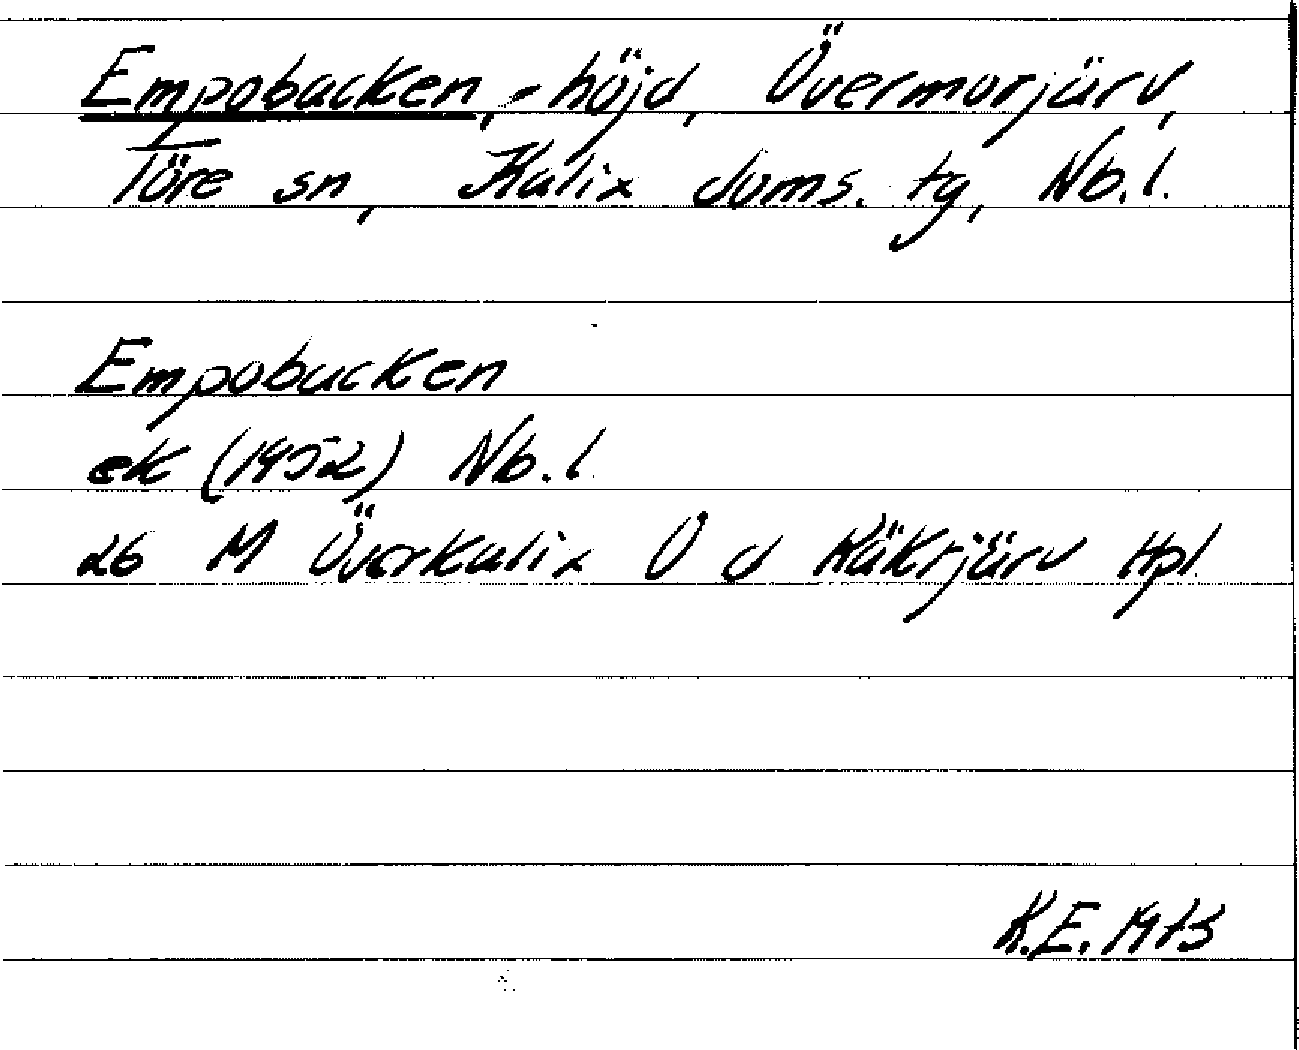 Empobacken, - höjd, Övermorjärv,
Töre sn, Kalix doms. tg, Nb. l.
Empobacken
ek (1952) Nb. l.
26 M Överkalix O d Räktjärv Hpl.
K.E. 1973